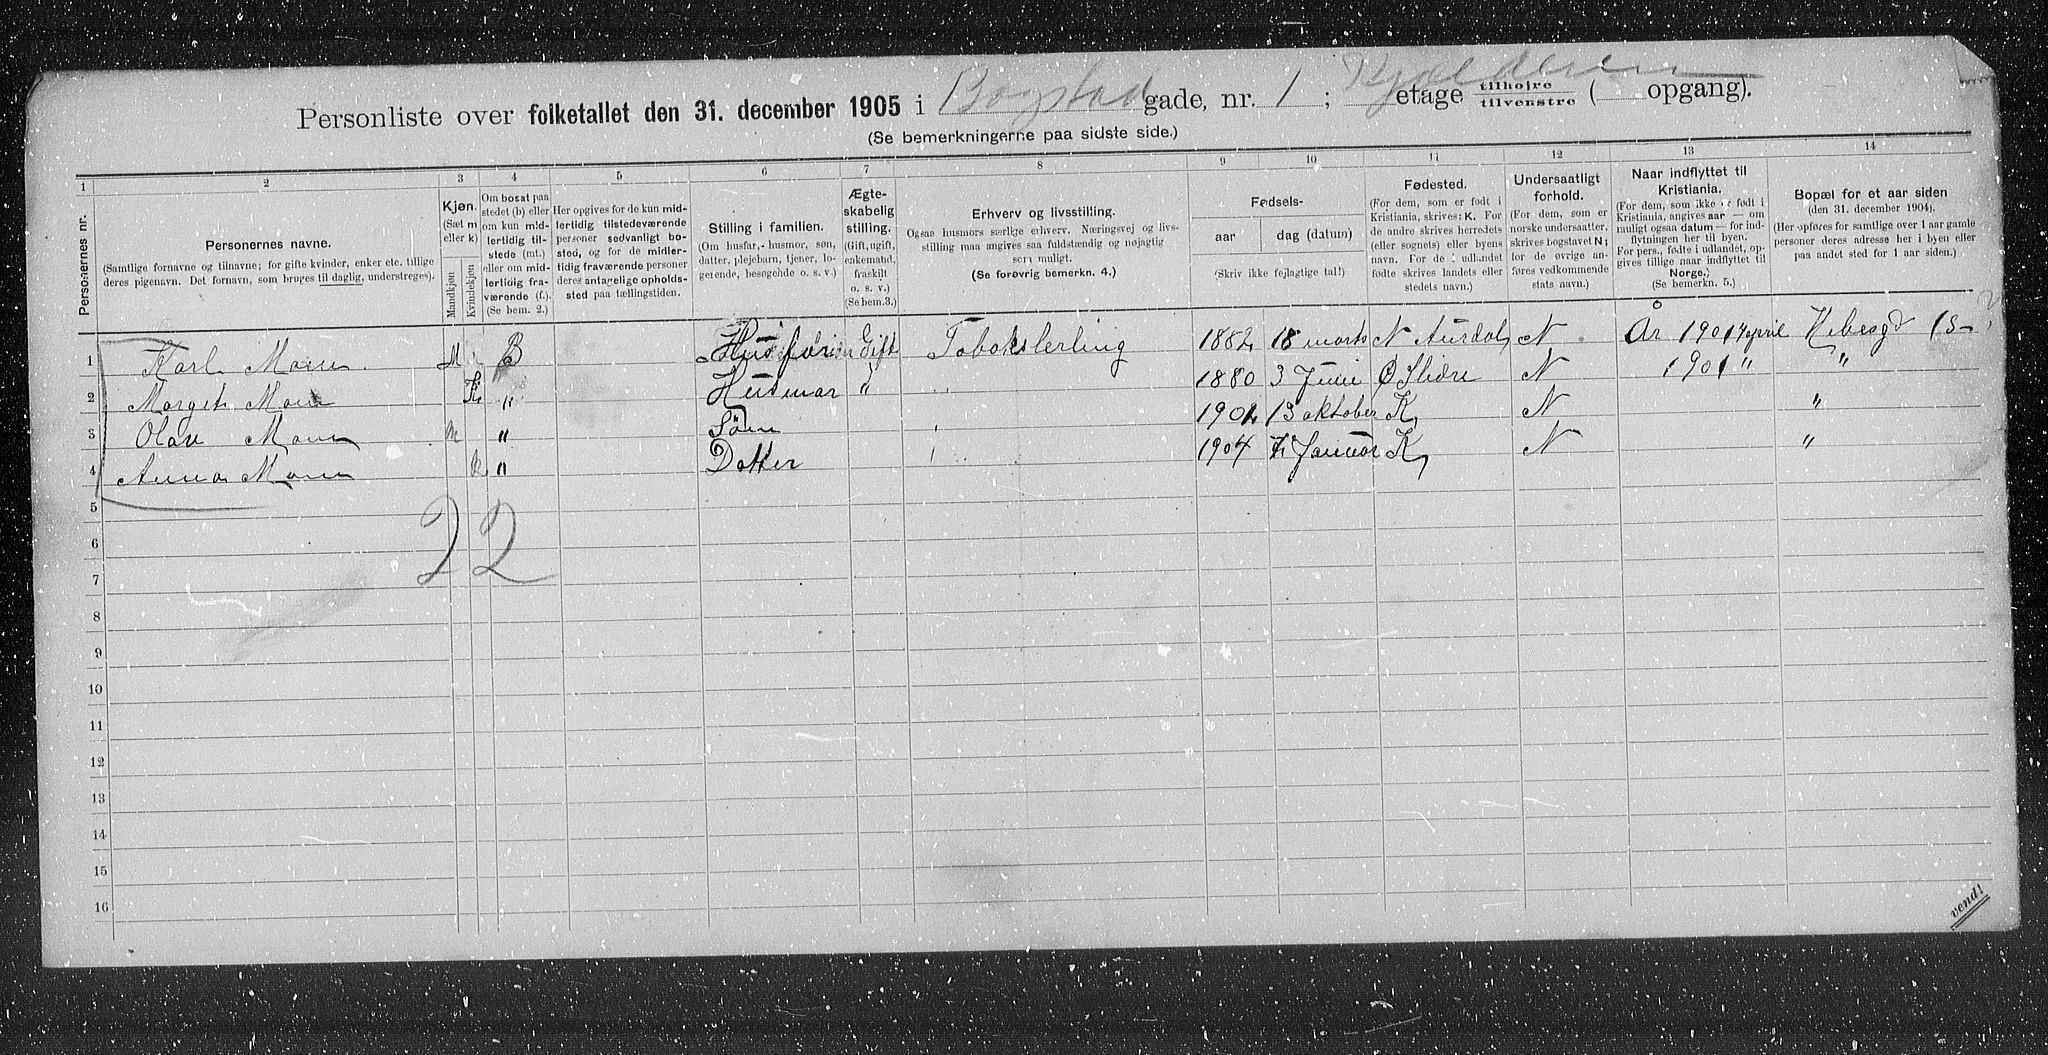 Personliste over folketallet den 31. december 1905 i Bogstad gade, nr. 1 ; Kjelderen etage tilhøjre tilvenstre ( opgang).
(Se bemerkningerne paa sidste side.)
1 2 3 4 5 6 7 8 9 10 11 12 13 14
Personernes nr.
Personernes navne.
(Samtlige fornavne og tilnavne; for gifte kvinder, enker etc. tillige
deres pigenavn. Det fornavn, som bruges til daglig, understreges).
Kjøn.
(Sæt m
eller k)
Mandkjøn
Kvindekjøn
Om bosat paa
stedet (b) eller
om kun mid-
lertidig til-
stede (mt.)
eller om mid-
lertidig fra-
værende (f.).
(Se bem. 2.)
Her opgives for de kun mid-
lertidig tilstedeværende
personer sedvanligt bo-
sted, og for de midler-
tidig fraværende personer
deres antagelige opholds-
sted paa tællingstiden.
Stilling i familien.
(Om husfar, husmor, søn,
datter, plejebarn, tjener, lo-
gerende, besøgende o. s. v.)
Ægte-
skabelig
stilling.
(Gift, ugift,
enkemand,
fraskilt
o. s. v.)
(Se bem.3.)
Erhverv og livsstilling.
Ogsaa husmors særlige erhverv. Næringsvej og livs-
stilling maa angives saa fuldstændig og nøjagtig
som muligt.
(Se forøvrig bemerkn. 4.)
Fødsels-
aar
dag (datum)
(Skriv ikke fejlagtige tal!)
Fødested.
(For dem, som er født i
Kristiania, skrives: K. For
de andre skrives herredets
(eller sognets) eller byens
navn. For de i udlandet
fødte skrives landets eller
stedets navn.)
Undersaatligt
forhold.
(For dem, som er
norske undersaatter,
skrives bogstavet N;
for de øvrige an-
føres vedkommende
stats navn.)
Naar indflyttet til
Kristiania.
(For dem, som ikke er født i
Kristiania, angives aar — om
muligt ogsaa datum — for ind-
flytningen her til byen.
For pers., fødte i udlandet, op-
gives tillige naar indflyttet til
Norge.)
(Se bemerkn. 5.)
Bopæl for et aar siden
(den 31. december 1904).
(Her opføres for samtlige over 1 aar gamle
personer deres adresse her i byen eller
paa andet sted for 1 aar siden.)
1 Karl Moen M B Husfar Gift 1882 18 marts N Aurdal N År 1901 april
2 Marget Moen K " Husmor " 1880 3 Juni Ø Slidre N 1901 " "
3 Olav Moen M " Sön 1902 13 oktober K N "
4 Anna Moen K " Dotter 1904 7 Januar K N "
5
2 2
6
7
8
9
10
11
12
13
14
15
16
vend!